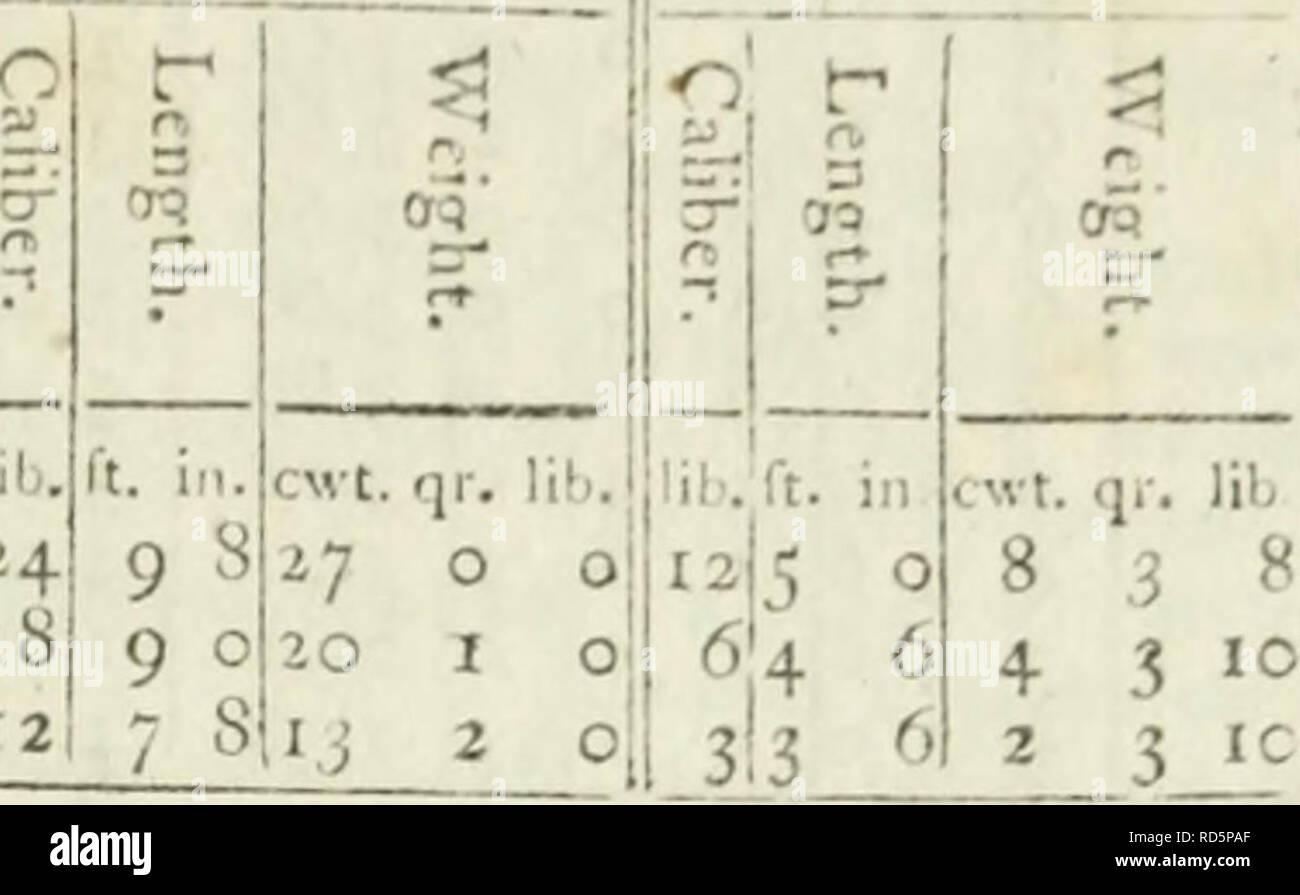 Caliber. Length. Weight. Caliber. Length. Weight.
ib. ft. in. cwt. qr. lib. lib. ft. in cwt. qr. lib
24 9 8 27 0 0 12 5 0 8 3 8
8 9 0 20 1 0 6 4 6 4 3 10
12 7 8 13 2 0 3 3 6 2 3 10
alamy
Image ID: RD5PAF
www.alamy.com